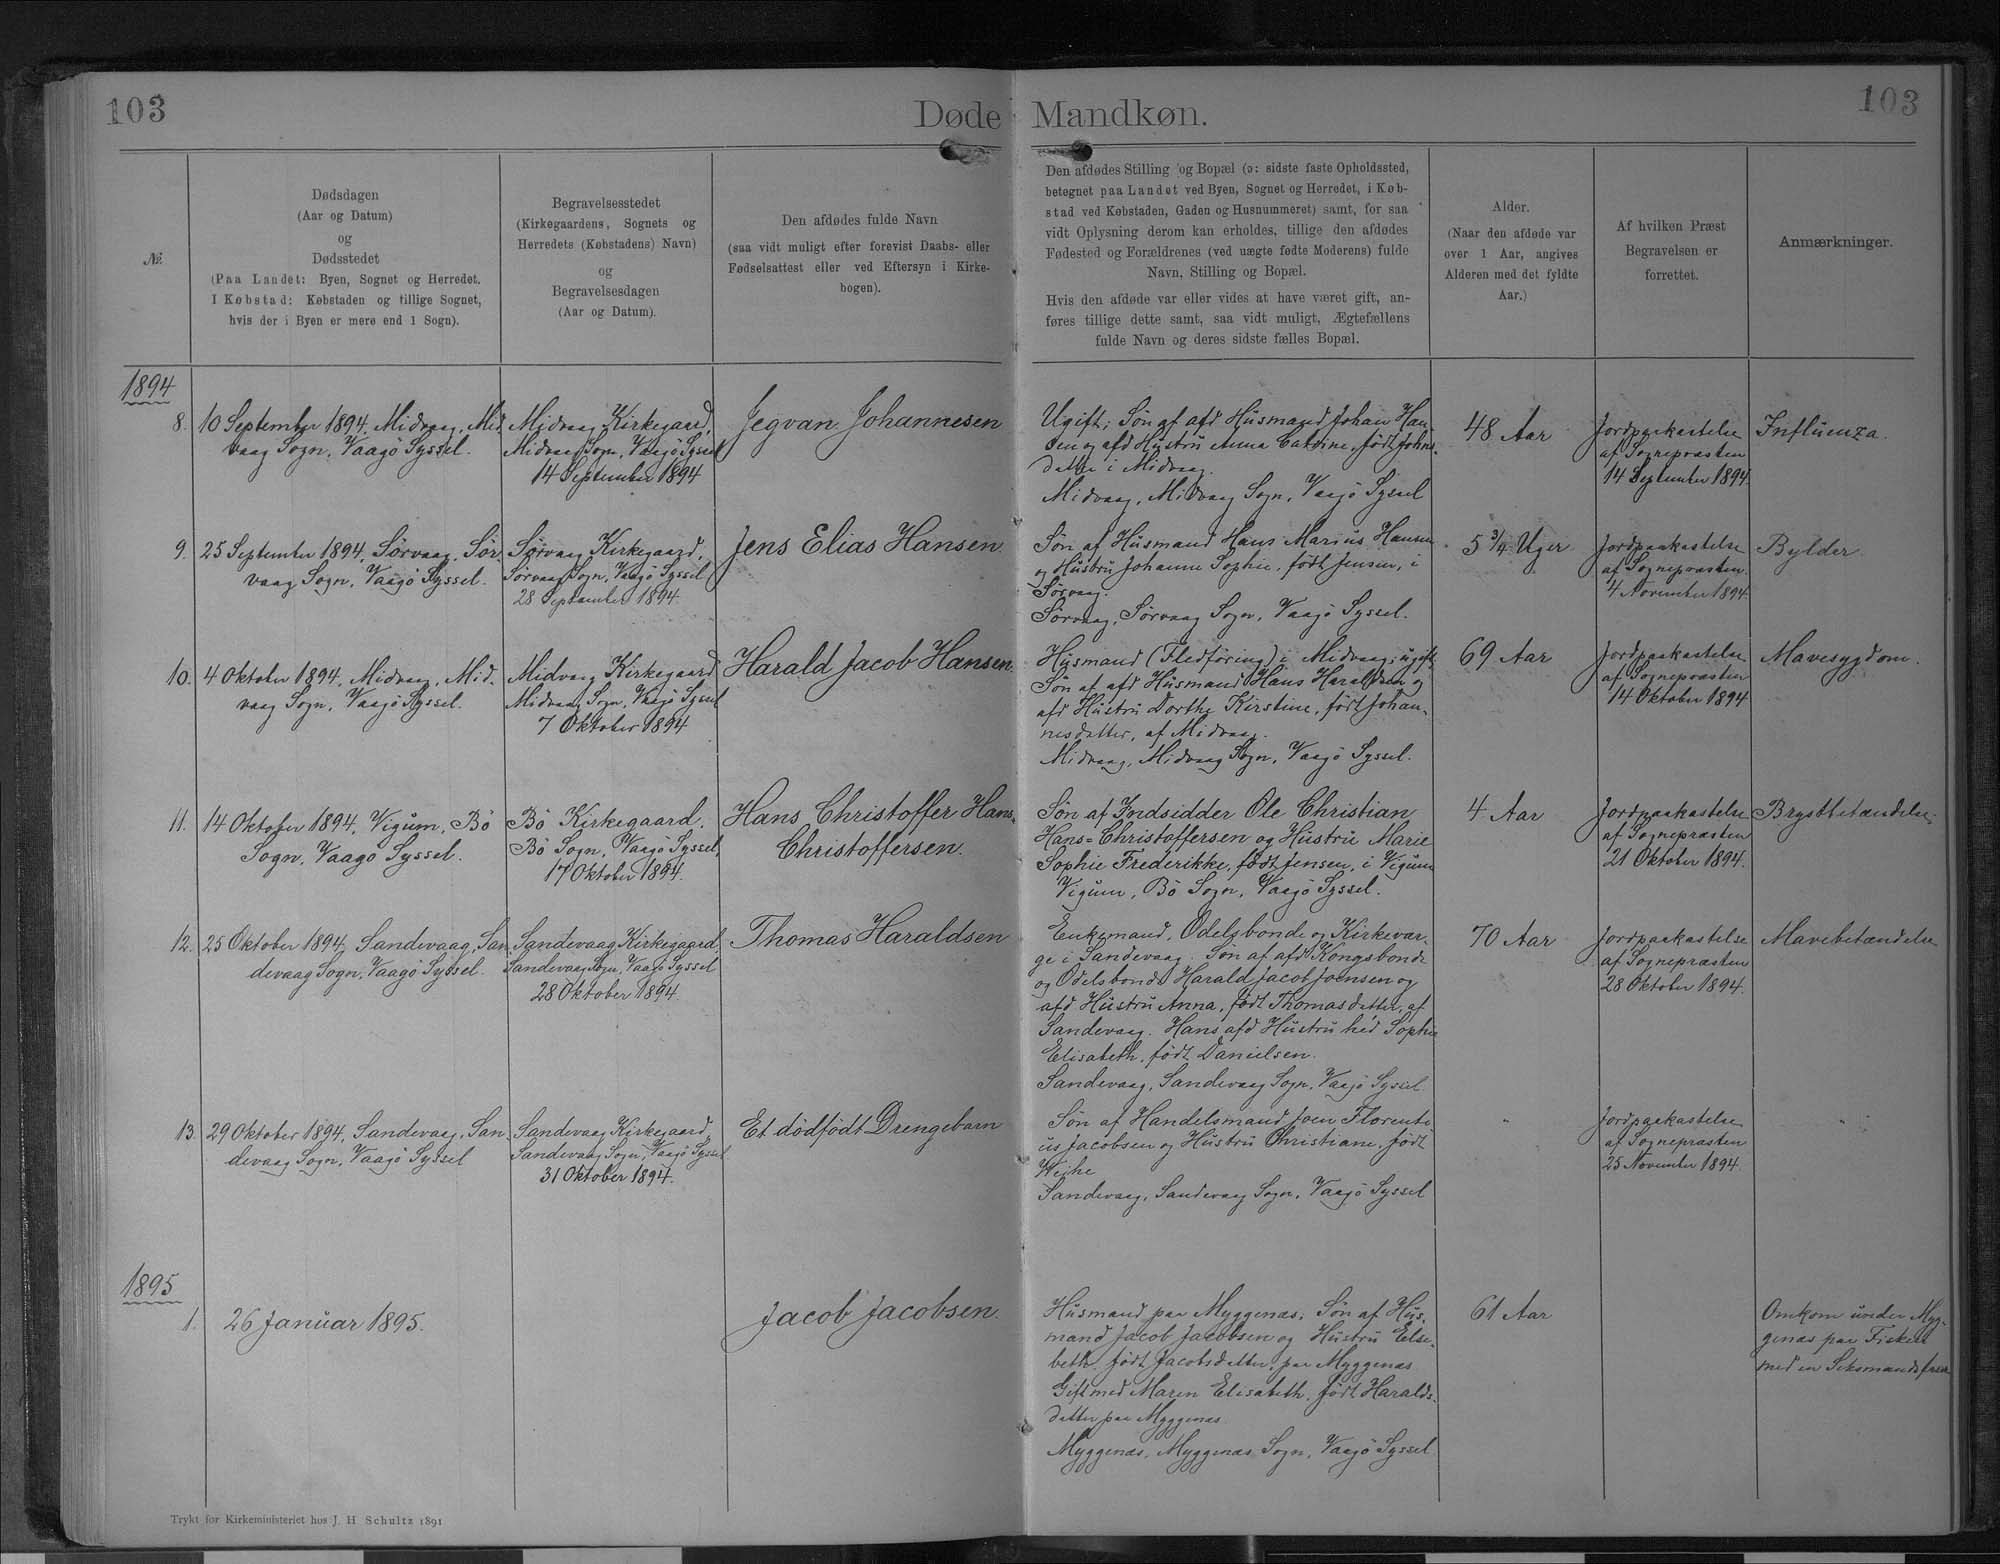 103
Døde
Mandkøn.
103
№
Dødsdagen
(Aar og Datum)
og
Dødsstedet
(Paa Landet: Byen, Sognet og Herredet.
I Købstad: Købstaden og tillige Sognet,
hvis der i Byen er mere end 1 Sogn).
Begravelsesstedet
(Kirkegaardens, Sognets og
Herredets (Købstadens) Navn)
og
Begravelsesdagen
(Aar og Datum).
Den afdødes fulde Navn
(saa vidt muligt efter forevist Daabs- eller
Fødselsattest eller ved Eftersyn i Kirke-
bogen).
Den afdødes Stilling og Bopæl (ɔ: sidste faste Opholdssted,
betegnet paa Landet ved Byen, Sognet og Herredet, i Køb-
stad ved Købstaden, Gaden og Husnummeret) samt, for saa
vidt Oplysning derom kan erholdes, tillige den afdødes
Fødested og Forældrenes (ved uægte fødte Moderens) fulde
Navn, Stilling og Bopæl.
Hvis den afdøde var eller vides at have været gift, an-
føres tillige dette samt, saa vidt muligt, Ægtefællens
fulde Navn og deres sidste fælles Bopæl.
Alder.
(Naar den afdøde var
over 1 Aar, angives
Alderen med det fyldte
Aar.)
Af hvilken Præst
Begravelsen er
forrettet.
Anmærkninger.
1894
8.
10 September 1894, Midvaag, Mid-
vaag Sogn, Vaagö Syssel.
Midvaag Kirkegaard,
Midvaag Sogn, Vaagö Syssel
14 September 1894
Jegvan Johannesen
Ugift; Søn af afd Husmand Johan Han-
sen og afd Hustru Anna Catrine, født Johns-
datter i Midvaag.
Midvaag, Midvaag Sogn, Vaagö Syssel
48 Aar
Jordpaakastelse
af Sognepræsten
14 September 1894.
Influenza.
9.
25 September 1894, Sörvaag, Sör-
vaag Sogn, Vaagö Syssel.
Sörvaag Kirkegaard,
Sörvaag Sogn, Vaagö Syssel
28 September 1894.
Jens Elias Hansen
Søn af Husmand Hans Marius Hansen
og Hustru Johanne Sophie, født Jensen, i
Sörvaag.
Sörvaag, Sörvaag Sogn, Vaagö Syssel.
5 3/4 Uger
Jordpaakastelse
af Sognepræsten.
4 November 1894.
Bylder.
10.
4 Oktober 1894, Midvaag, Mid-
vaag Sogn, Vaagö Syssel.
Midvaag Kirkegaard
Midvaag Sogn, Vaagö Syssel
7 Oktober 1894
Harald Jacob Hansen.
Husmand (Fledføring) i Midvaag; ugift
Søn af afd Husmand Hans Haraldsen og
afd Hustru Dorthe Kirstine, født Johan-
nesdatter, af Midvaag.
Midvaag, Midvaag Sogn, Vaagö Syssel.
69 Aar
Jordpaakastelse
af Sognepræsten
14 Oktober 1894
Mavesygdom.
11.
14 Oktober 1894, Vigum, Bö
Sogn, Vaagö Syssel.
Bö Kirkegaard.
Bö Sogn, Vaagö Syssel,
17 Oktober 1894.
Hans Christoffer Hans-
Christoffersen.
Søn af Indsidder Ole Christian
Hans-Christoffersen og Hustru Marie
Sophie Frederikke, født Jensen, i Vigum
Vigum, Bö Sogn, Vaagö Syssel.
4 Aar
Jordpaakastelse
af Sognepræsten
21 Oktober 1894.
Brystbetændelse.
12.
25 Oktober 1894, Sandevaag, San-
devaag Sogn, Vaagö Syssel.
Sandevaag Kirkegaard,
Sandevaag Sogn, Vaagö Syssel
28 Oktober 1894.
Thomas Haraldsen
Enkemand, Odelsbonde og Kirkevær-
ge i Sandevaag. Søn af afd Kongsbonde
og Odelsbonde Harald Jacob Joensen og
afd Hustru Anna, født Thomasdatter, af
Sandevaag. Hans afd Hustru héd Sophie
Elisabeth, født Danielsen.
Sandevaag, Sandevaag Sogn, Vaagö Syssel.
70 Aar
Jordpaakastelse
af Sognepræsten
28 Oktober 1894.
Mavebetændelse
13.
29 Oktober 1894, Sandevaag, San-
devaag Sogn, Vaagö Syssel
Sandevaag Kirkegaard,
Sandevaag Sogn, Vaagö Syssel
31 Oktober 1894.
Et dödfödt Drengebarn
Søn af Handelsmand Joen Florenti-
us Jacobsen og Hustru Christiane, født
Weihe
Sandevaag, Sandevaag Sogn, Vaagö Syssel
"
Jordpaakastelse
af Sognepræsten
25 November 1894.
"
1895
1.
26 Januar 1895.
Jacob Jacobsen.
Husmand paa Myggenæs; Søn af Hus-
mand Jacob Jacobsen og Hustru Else-
beth, født Jacobsdatter, paa Myggenæs
Gift med Maren Elisabeth, født Haralds-
datter paa Myggenæs
Myggenæs, Myggenæs Sogn, Vaagö Syssel
61 Aar
Omkom under Myg-
genæs paa Fiskeri
med en Seksmandsfarer
Trykt for Kirkeministeriet hos J. H. Schultz 1891